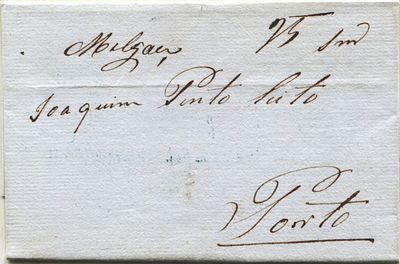 Melgaço 25
Joaquim Pinto Leite
Porto